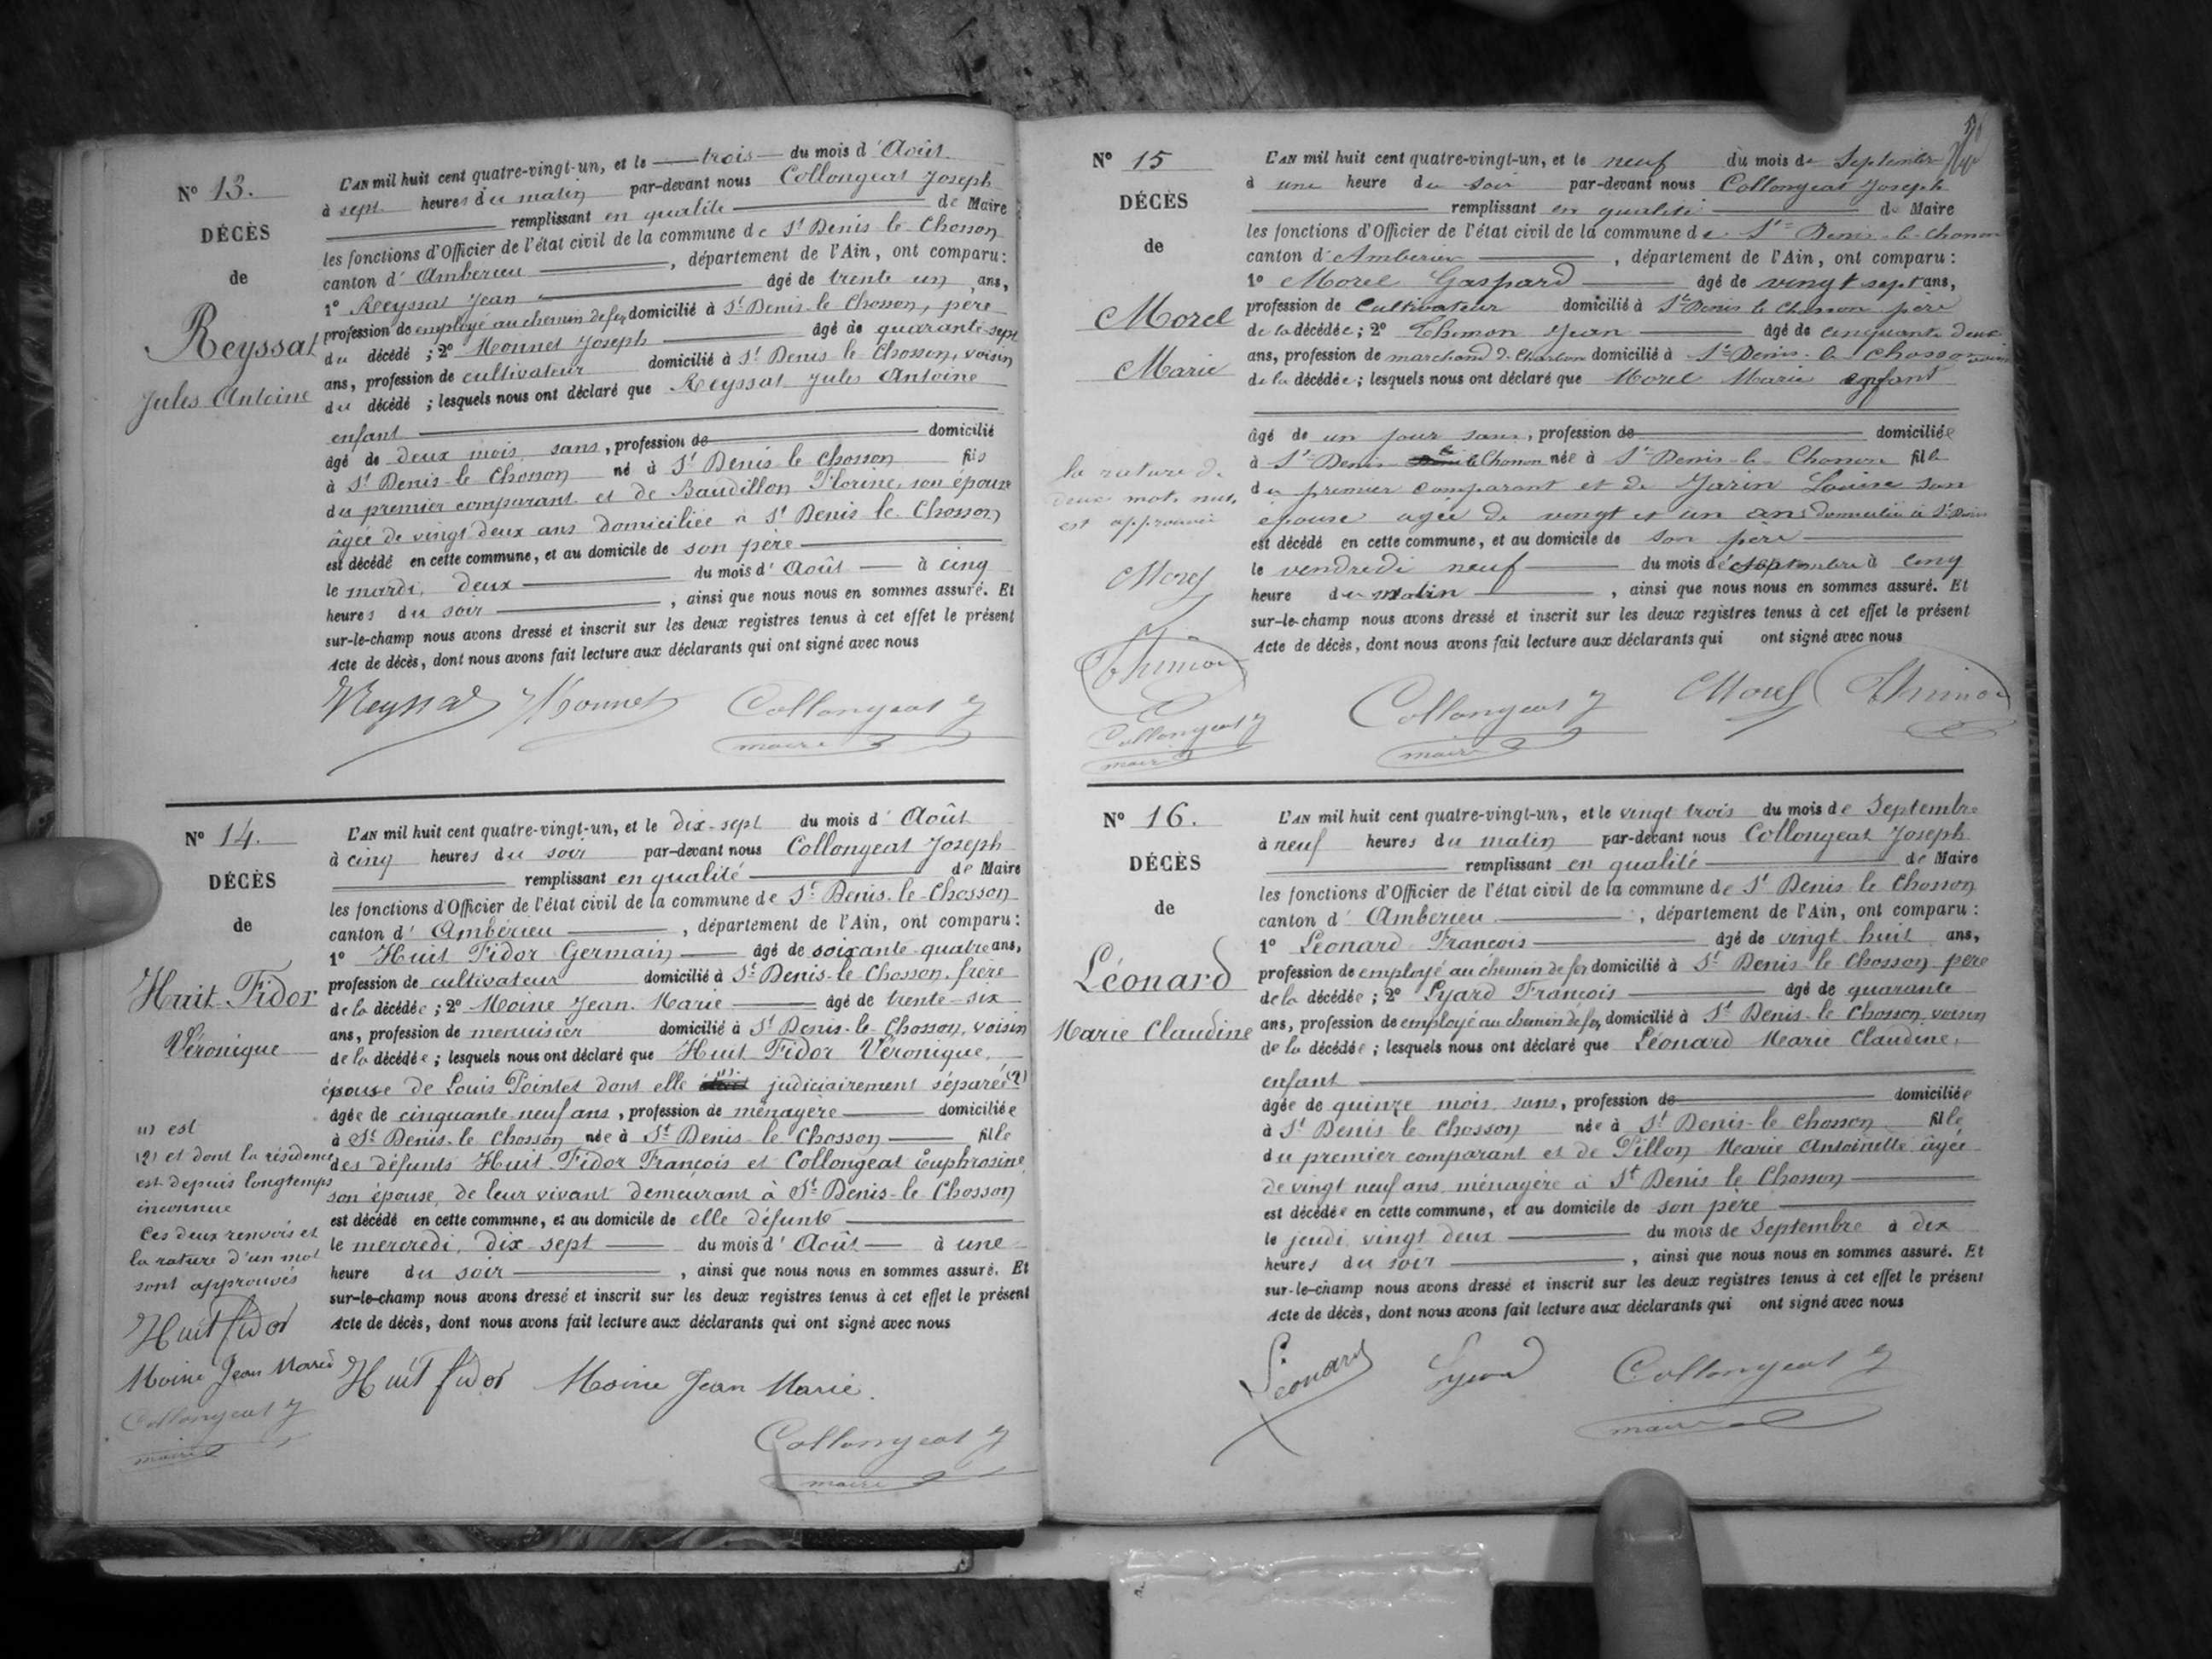 N° 13.
DÉCÈS
de
Reyssat
Jules Antoine
L'AN mil huit cent quatre-vingt-un, et le trois du mois d'Août
à sept heures du matin par-devant nous Collongeat Joseph
remplissant en qualité de Maire
les fonctions d'Officier de l'état civil de la commune de St Denis le Chosson
canton d'Ambérieu, département de l'Ain, ont comparu:
1° Reyssat Jean âgé de trente un ans,
profession de employé au chemin de fer domicilié à St Denis-le Chosson, père
du décédé; 2° Monnet Joseph âgé de quarante-sept
ans, profession de cultivateur domicilié à St Denis le Chosson, voisin
du décédé; lesquels nous ont déclaré que Reyssat Jules Antoine
enfant
âgé de deux mois sans, profession de domicilié
à St Denis-le Chosson né à St Denis-le Chosson fils
du premier comparant et de Baudillon Florine, son épouse
âgée de vingt deux ans domiciliée à St Denis le Chosson
est décédé en cette commune, et au domicile de son père
le mardi, deux du mois d'Août à cinq
heures du soir, ainsi que nous nous en sommes assuré. Et
sur-le-champ nous avons dressé et inscrit sur les deux registres tenus à cet effet le présent
Acte de décès, dont nous avons fait lecture aux déclarants qui ont signé avec nous
Reyssat Monnet Collongeat J
maire
N° 14.
DÉCÈS
de
Huit-Fidor
Véronique
L'AN mil huit cent quatre-vingt-un, et le dix-sept du mois d'Août
à cinq heures du soir par-devant nous Collongeat Joseph
remplissant en qualité de Maire
les fonctions d'Officier de l'état civil de la commune de St Denis-le-Chosson
canton d'Ambérieu, département de l'Ain, ont comparu:
1° Huit Fidor Germain âgé de soixante-quatre ans,
profession de cultivateur domicilié à St Denis-le-Chosson, frère
de la décédée; 2° Moine Jean-Marie âgé de trente-six
ans, profession de menuisier domicilié à St Denis-le-Chosson, voisin
de la décédée; lesquels nous ont déclaré que Huit Fidor Véronique,
épouse de Louis Pointet dont elle (1) judiciairement séparée (2)
âgée de cinquante-neuf ans, profession de ménagère domiciliée
à St Denis-le Chosson née à St Denis-le Chosson fille
des défunts Huit-Fidor François et Collongeat Euphrosine
son épouse, de leur vivant demeurant à St Denis-le-Chosson
est décédé en cette commune, et au domicile de elle défunte
le mercredi, dix-sept du mois d'Août à une
heure du soir, ainsi que nous nous en sommes assuré. Et
sur-le-champ nous avons dressé et inscrit sur les deux registres tenus à cet effet le présent
Acte de décès, dont nous avons fait lecture aux déclarants qui ont signé avec nous
(1) est
(2) et dont la résidence
est depuis longtemps
inconnue
Ces deux renvois et
la rature d'un mot
sont approuvés
Huit fidor
Moine Jean Marie
Collongeat J
maire
Huit fidor Moine Jean Marie.
Collongeat J
maire
N° 15
DÉCÈS
de
Morel
Marie
L'AN mil huit cent quatre-vingt-un, et le neuf du mois de Septembre
à une heure du soir par-devant nous Collongeat Joseph
remplissant en qualité de Maire
les fonctions d'Officier de l'état civil de la commune de St Denis-le-Chosson
canton d'Ambérieu, département de l'Ain, ont comparu:
1° Morel Gaspard âgé de vingt sept ans,
profession de Cultivateur domicilié à St Denis le Chosson père
de la décédée; 2° Thimon Jean âgé de cinquante deux
ans, profession de marchand de Charbon domicilié à St Denis-le-Chosson voisin
de la décédée; lesquels nous ont déclaré que Morel Marie enfant
âgé de un jour sans, profession de domiciliée
à St Denis le Chosson née à St Denis-le-Chosson fille
du premier comparant et de Jarin Louise son
épouse agée de vingt et un ans domiciliée à St Denis
est décédé en cette commune, et au domicile de son père
le vendredi neuf du mois de septembre à cinq
heure du matin, ainsi que nous nous en sommes assuré. Et
sur-le-champ nous avons dressé et inscrit sur les deux registres tenus à cet effet le présent
Acte de décès, dont nous avons fait lecture aux déclarants qui ont signé avec nous
la rature de
deux mots nuls,
est approuvée
Morel
Thimon
Collongeat J
maire
Collongeat J Morel Thimon
maire
N° 16.
DÉCÈS
de
Léonard
Marie Claudine
L'AN mil huit cent quatre-vingt-un, et le vingt trois du mois de Septembre
à neuf heures du matin par-devant nous Collongeat Joseph
remplissant en qualité de Maire
les fonctions d'Officier de l'état civil de la commune de St Denis le Chosson
canton d'Ambérieu, département de l'Ain, ont comparu:
1° Léonard François âgé de vingt huit ans,
profession de employé au chemin de fer domicilié à St Denis le Chosson père
de la décédée; 2° Lyard François âgé de quarante
ans, profession de employé au chemin de fer domicilié à St Denis-le Chosson voisin
de la décédée; lesquels nous ont déclaré que Léonard Marie Claudine,
enfant
âgée de quinze mois sans, profession de domiciliée
à St Denis le Chosson née à St Denis-le Chosson fille
du premier comparant et de Pillon Marie Antoinette âgée
de vingt neuf ans, ménagère à St Denis le Chosson
est décédée en cette commune, et au domicile de son père
le jeudi, vingt deux du mois de Septembre à dix
heures du soir, ainsi que nous nous en sommes assuré. Et
sur-le-champ nous avons dressé et inscrit sur les deux registres tenus à cet effet le présent
Acte de décès, dont nous avons fait lecture aux déclarants qui ont signé avec nous
Léonard Lyard Collongeat J
maire